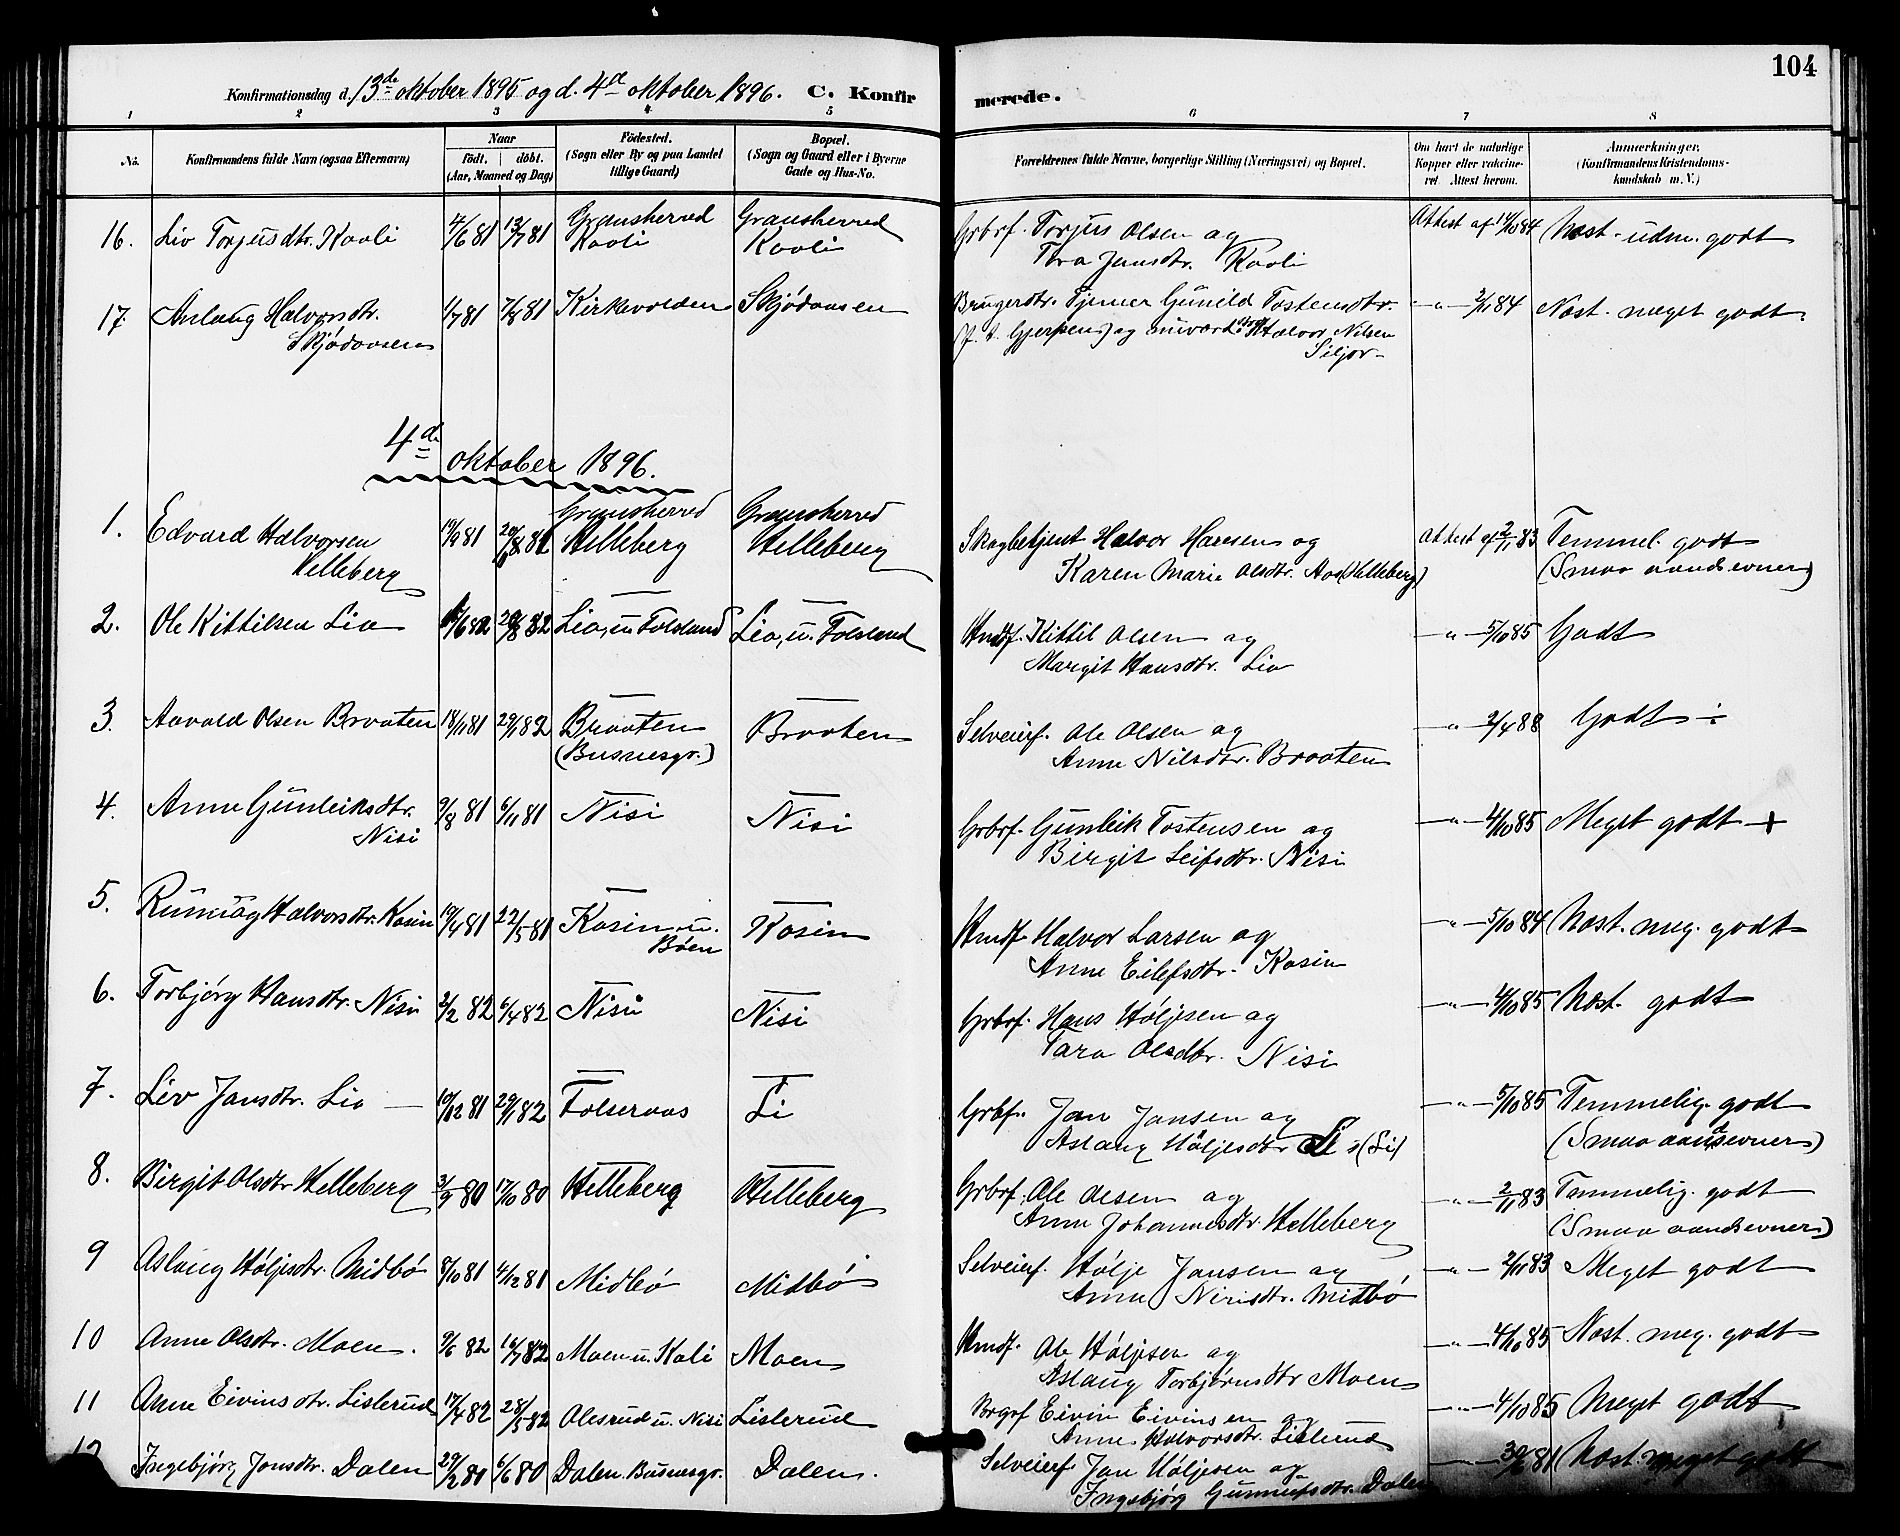 104
Konfirmationsdag d. 13de oktober 1895 og d. 4de oktober 1896. C. Konfirmerede.
1 2 3 4 5 6 7 8
No. Konfirmandens fulde Navn (ogsaa Efternavn) Naar födt. döbt. (Aar, Maaned og Dag) Födested. (Sogn eller By og paa Landet tillige Gaard) Bopæl. (Sogn og Gaard eller i Byerne Gade og Hus-No. Forældrenes fulde Navne, borgerlige Stilling (Næringsvei) og Bopæl. Om havt de naturlige Kopper eller vaccineret. Attest herom. Anmærkninger. (Konfirmandens Kristendomskundskab m. V.)
16. Liv Torjusdtr. Kaali 4/6 81 13/7 81 Gransherred Kaali Gransherred Kaali Grbrf. Torjus Olsen og Tora Jansdtr. Kaali Attest af 14/10 84 Næst. udm. godt
17. Anlaug Halvorsdtr. Skjødaasen 1/7 81 7/8 81 Kirkevolden Skjødaasen Brugerdtr. Tjener Gunild Tostensdtr. (p. t. Gjerpen) og Halvor Nilsen Siljor - " - 3/11 84 Næst. meget godt.
4de oktober 1896.
1. Edvard Halvorsen Helleberg 19/9 81 Gransherred Helleberg Gransherred Helleberg Skogbetjent Halvor Hansen og Karen Marie Olsdtr. Aas (Helleberg) Attest af 2/11 83 Temmel. godt (Smaa aandsevner)
2. Ole Kittilsen Lia 20/8 82 Lia, u. Folsland Lia, u. Folsland Hmdf. Kittil Olsen og Margit Hansdtr. Lia - " - 5/10 85 Godt
3. Aavald Olsen Braaten 18/11 81 29/1 82 Braaten (Busnesgr.) Braaten Selveierf. Ole Olsen og Anne Nilsdtr. Braaten - " - 2/4 88 Godt ÷
4. Anne Gunleiksdtr. Nisi 9/8 81 6/11 81 Nisi Nisi Grbrf. Gunleik Tostensen og Birgit Leifsdtr. Nisi - " - 4/10 85 Meget godt +
5. Halvorsdtr. Kasin 19/4 81 22/5 81 Kasin u. Bøen Kasin Hmdf. Halvor Larsen og Anne Eilefsdtr. Kasin - " - 5/10 84 Næst. meg. godt
6. Torbjørg Hansdtr. Nisi 2/2 82 6/4 82 Nisi Nisi Grbrf. Hans Høljesen og Tara Olsdtr. Nisi - " - 4/10 85 Næst. godt
7. Liv Jansdtr. Lia 10/12 81 29/1 82 Folseraas Li Grbrf. Jan Jansen og Aslaug Høljesdtr. (Li) - " - 5/10 85 Temmelig godt (Smaa aandsevner)
8. Birgit Olsdtr Helleberg 3/9 80 17/10 80 Helleberg Helleberg Grbrf. Ole Olsen og Anne Johannesdtr. Helleberg - " - 2/11 83 Temmelig. godt (Smaa aandsevner)
9 Aslaug Høljesdtr. Midbø 8/10 81 4/12 81 Midbø Midbø Selveierf. Hølje Jansen og Anne Nirisdtr. Midbø - " - 2/11 83 Meget godt
10 Anne Olsdtr. Moen. 9/6 82 16/7 82 Moen u. Kali Moen Hmdf. Ole Høljesen og Aslaug Torbjørnsdtr Moen - " - 4/10 85 Næst. meg. godt
11 Anne Eivinsdtr. Lislerud 17/4 82 28/5 82 Olesrud u. Nisi Lislerud Brgrf Eivin Eivinsen og Anne Halvorsdtr. Lislerud - " - 4/10 85 Meget godt
12 Ingebjørg Jonsdtr. Dalen 6/6 80 Dalen. Busnesgr. Dalen. Selveierf Jan Høljesen og Ingebjørg Gunnulfsdtr. Dalen Næst. meget godt